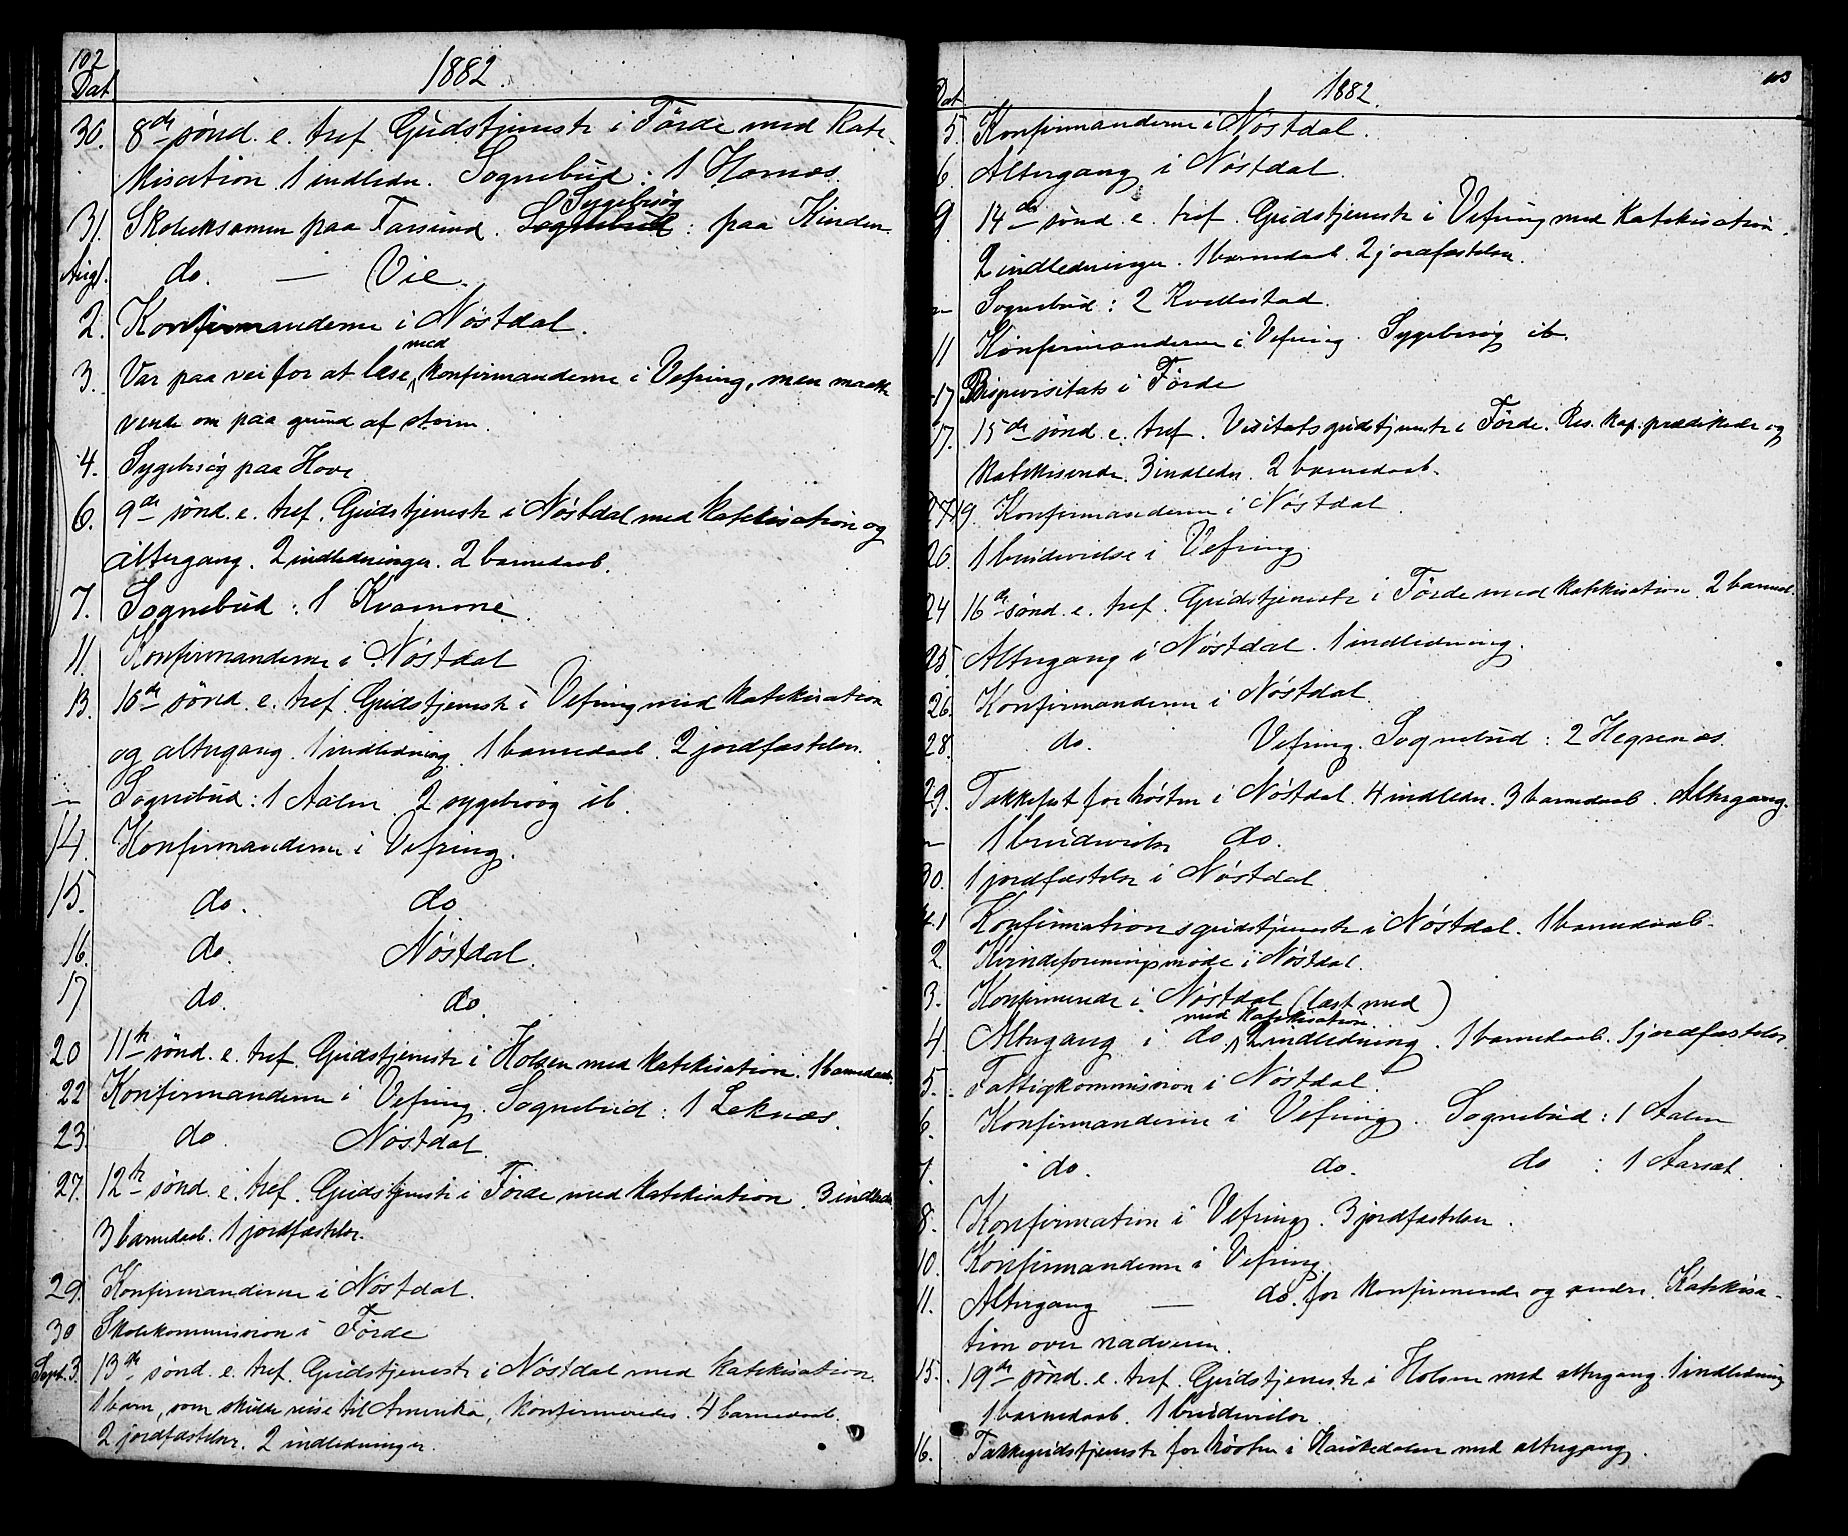 102
Dat
1882.
30. 8de sønd. e. tref. Gudstjeneste i Förde med kate-
kisation 1 indledn. Sognebud: 1 Hornæs.
31. Skoleksamen paa Farsund. Sygebesøg Sognebud: paa Kinden.
Aug 1. do. — Vie.
2. Konfirmanderne i Nöstdal.
3. Var paa vei for at læse med konfirmanderne i Vefring, men maatte
vende om paa grund af storm.
4. Sygebesøg paa Hove
6. 9de sønd. e. tref. Gudstjeneste i Nöstdal med katekisation og
altergang. 2 indledninger. 2 barnedaab.
7. Sognebud: 1 Kvamme.
11. Konfirmanderne i Nöstdal
13. 10de sønd. e. tref. Gudstjeneste i Vefring med katekisation
og altergang. 1 indledning. 1 barnedaab. 2 jordfæstelser.
— Sognebud: 1 Aalen 2 sygebesøg ib.
14. Konfirmanderne i Vefring.
15. do. do
16. do. Nöstdal.
17 do. do.
20 11te sønd. e. tref. Gudstjeneste i Holsen med katekisation. 1 barnedaab.
22 Konfirmanderne i Vefring. Sognebud: 1 Leknæs.
23 do. Nöstdal.
27. 12te sønd. e. tref. Gudstjeneste i Förde med katekisation. 3 indledn.
3 barnedaab. 1 jordfæstelse.
29. Konfirmanderne i Nöstdal.
30 Skolekommission i Förde
Sept. 3. 13de sønd. e. tref. Gudstjeneste i Nöstdal med katekisation.
1 barn, som skulde reise til Amerika, konfirmeredes. 4 barnedaab.
2 jordfæstelser. 2 indledninger.
103
Dat
1882.
5. Konfirmanderne i Nöstdal.
6. Altergang i Nöstdal.
9. 14de sønd. e. tref. Gudstjeneste i Vefring med katekisation.
2 indledninger. 1 barnedaab. 2 jordfæstelser.
— Sognebud: 2 Kvellestad.
11 Konfirmanderne i Vefring. Sygebesøg ib.
17 Bispevisitats i Förde
17. 15de sønd. e. tref. Visitatsgudstjeneste i Förde. Res. kap. prædikede og
katekiserede. 3 indledn. 2 barnedaab.
19. Konfirmanderne i Nöstdal.
20. 1 brudevielse i Vefring.
24 16de sønd. e. tref. Gudstjeneste i Förde med katekisation. 2 barned.
25. Altergang i Nöstdal. 1 indledning.
26. Konfirmanderne i Nöstdal.
28. do. Vefring. Sognebud: 2 Hegrenæs.
29. Takkefest for høsten i Nöstdal. 4 indledn. 3 barnedaab. Altergang.
— 1 brudevielse do.
30. 1 jordfæstelse i Nöstdal.
1 Konfirmationsgudstjeneste i Nöstdal. 1 barnedaab.
2. Kvindeforeningsmöde i Nöstdal.
3. Konfirmerede i Nöstdal (læst med)
4. Altergang i do. med katekisation 2 indledning. 1 barnedaab. 1 jordfæstelse.
5. Fattigkommission i Nöstdal.
6. Konfirmanderne i Vefring. Sognebud: 1 Aalen
7. do. do. do : 1 Aarsæt.
8. Konfirmation i Vefring. 3 jordfæstelser.
10. Konfirmanderne i Vefring.
11. Altergang — do. for konfirmerede og andre. Katekisa-
tion over nadveren.
15. 19de sønd. e. tref. Gudstjeneste i Holsen med altergang. 1 indledning
1 barnedaab. 1 brudevielse.
16. Takkegudstjeneste for høsten i Haukedalen med altergang.